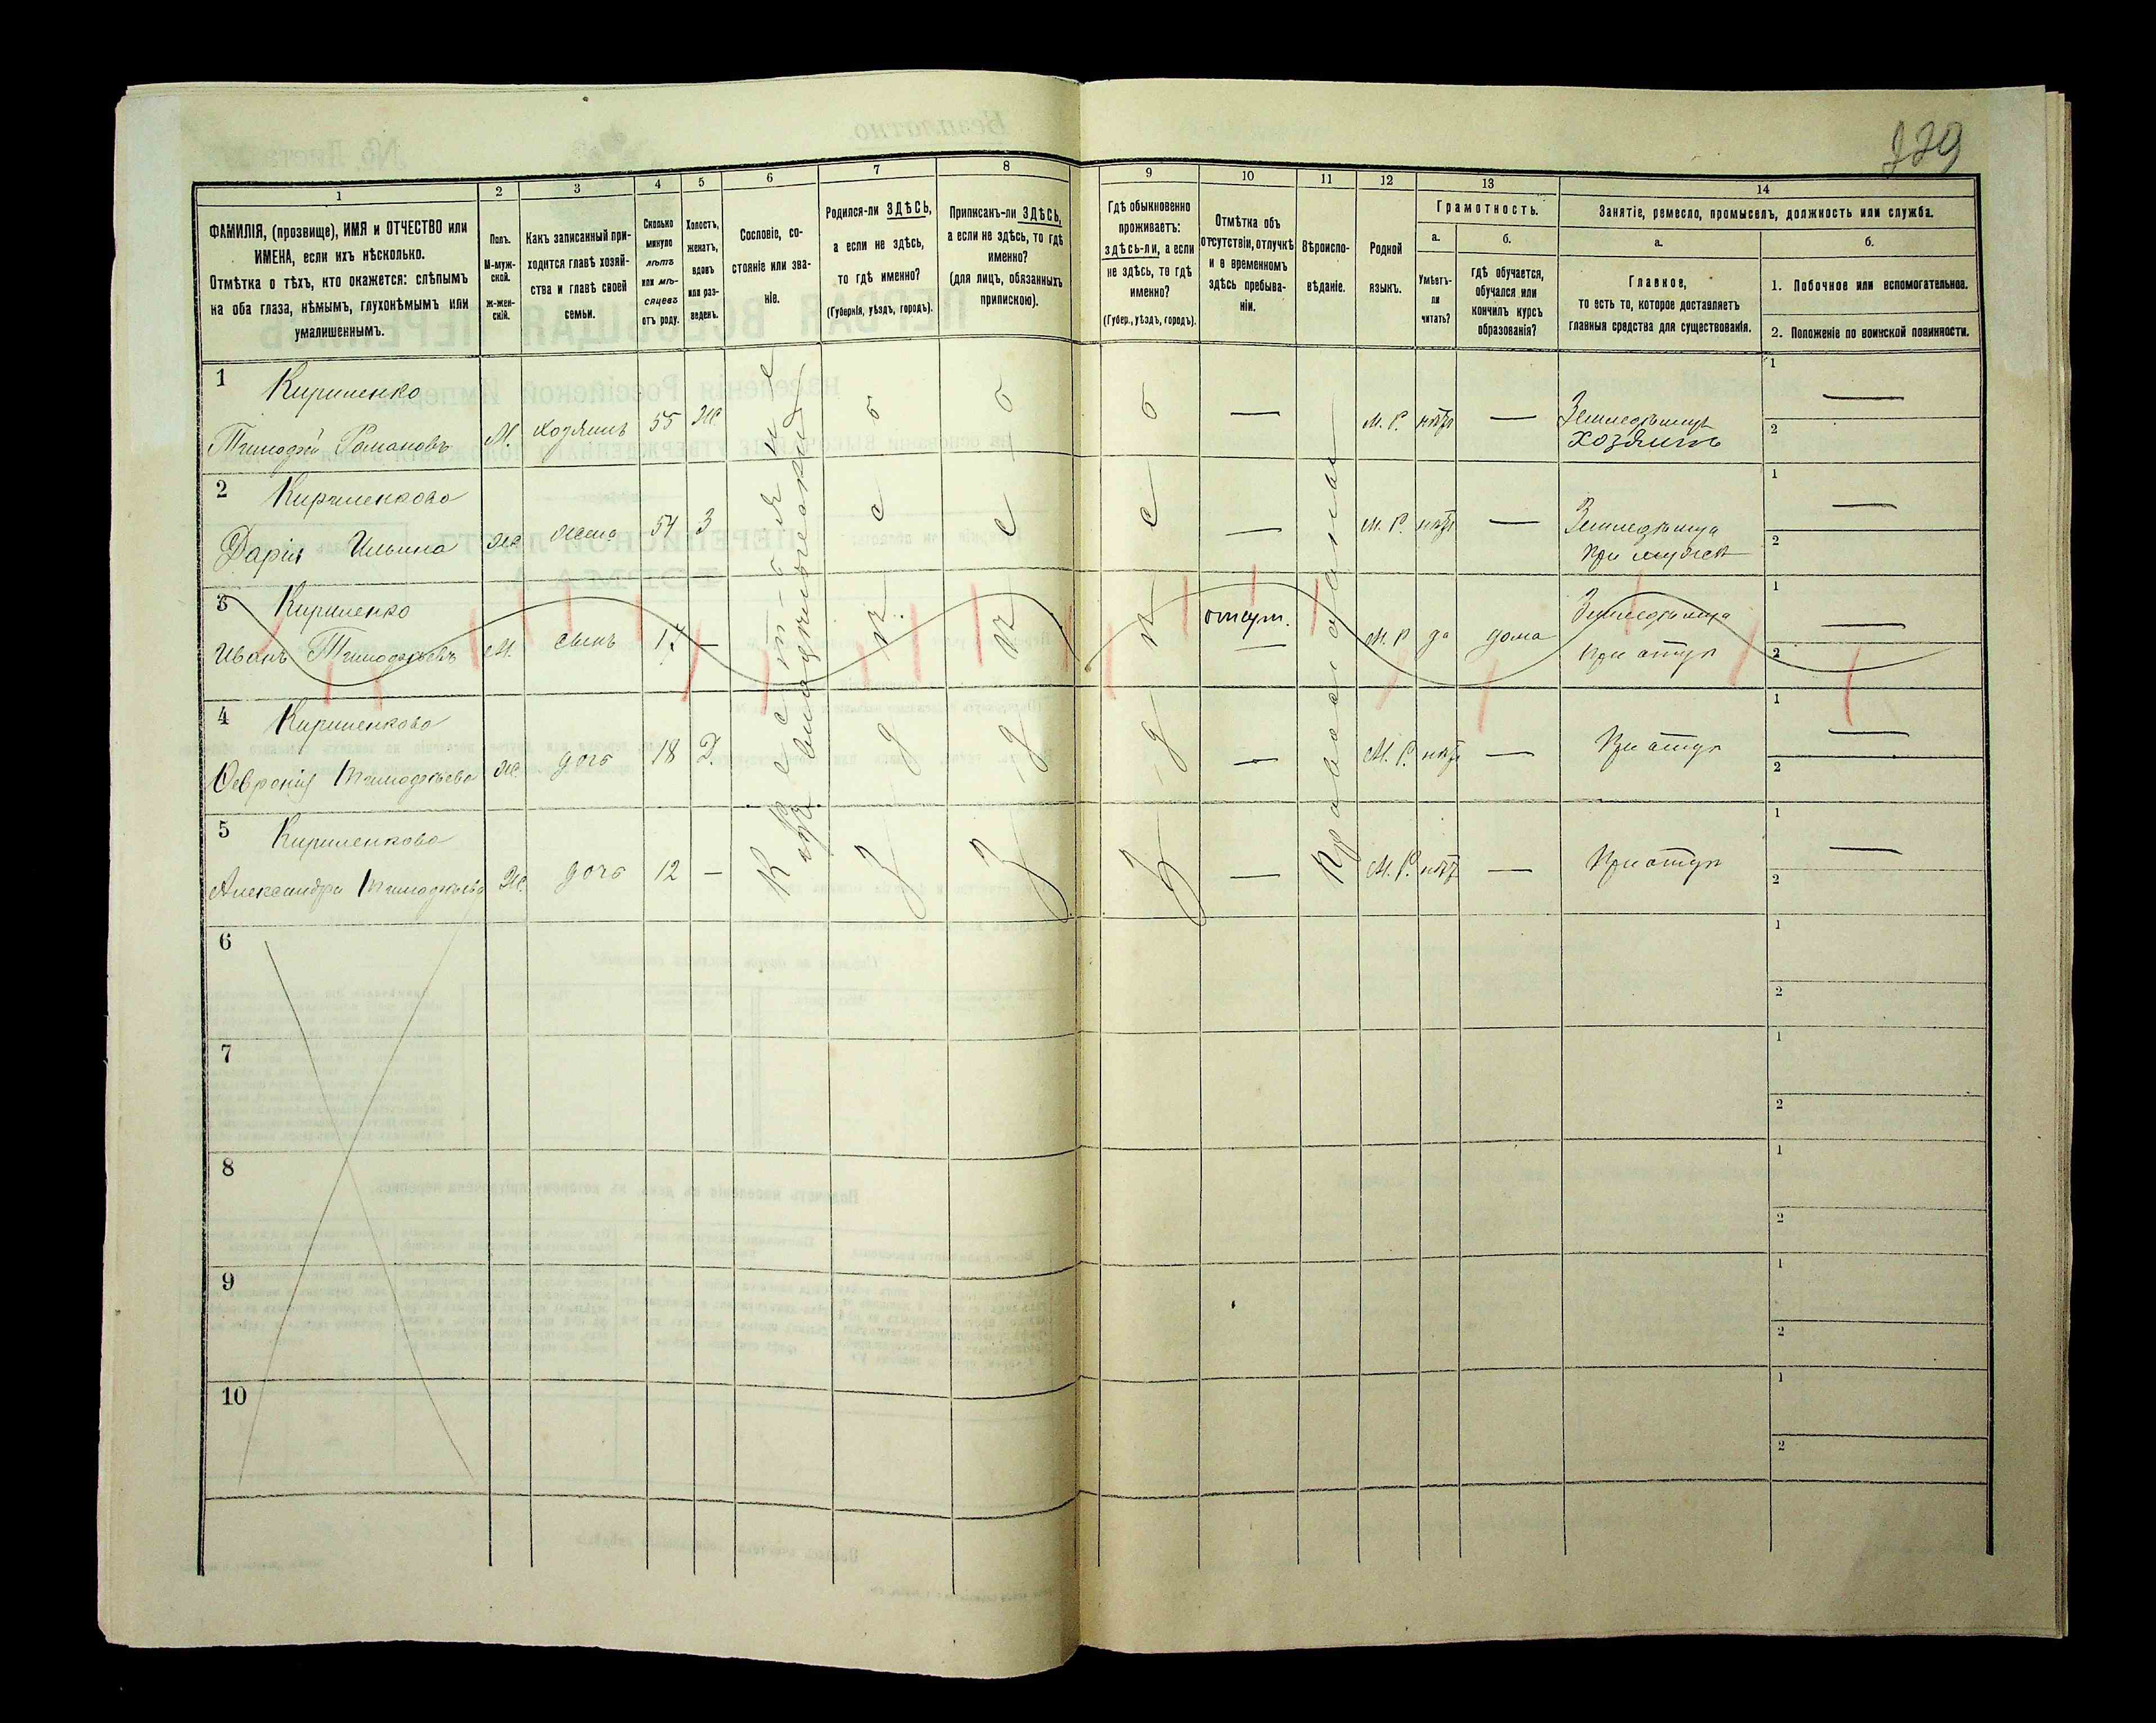 229
1 2 3 4 5 6 7 8 9 10 11 12 13 14
ФАМИЛІЯ, (прозвище), ИМЯ и ОТЧЕСТВО или
ИМЕНА, если ихъ нѣсколько.
Отмѣтка о тѣхъ, кто окажется: слѣпымъ
на оба глаза, нѣмымъ, глухонѣмымъ или
умалишеннымъ.
Полъ.
М-муж-
ской.
ж-жен-
скій.
Какъ записанный при-
ходится главѣ хозяй-
ства и главѣ своей
семьи.
Сколько
минуло
лѣтъ
или мѣ-
сяцевъ
отъ роду.
Холостъ,
женатъ,
вдовъ
или раз-
веденъ.
Сословіе, со-
стояніе или зва-
ніе.
Родился-ли ЗДѢСЬ,
а если не здѣсь,
то гдѣ именно?
(Губернія, уѣздъ, городъ).
Приписанъ-ли ЗДѢСЬ,
а если не здѣсь, то гдѣ
именно?
(для лицъ, обязанныхъ
припискою).
Гдѣ обыкновенно
проживаетъ:
ЗДѢСЬ-ЛИ, а если
не здѣсь, то гдѣ
именно?
(Губер., уѣздъ, городъ).
Отмѣтка объ
отсутствіи, отлучкѣ
и о временномъ
здѣсь пребыва-
ніи.
Вѣроиспо-
вѣданіе.
Родной
языкъ.
Грамотность.
а.
Умѣетъ-
ли
читать?
б.
гдѣ обучается,
обучался или
кончилъ курсъ
образованія?
Занятіе, ремесло, промыселъ, должность или служба.
а.
Главное,
то есть то, которое доставляетъ
главныя средства для существованія.
б.
1. Побочное или вспомогательное.
2. Положеніе по воинской повинности.
1 Кириленко
Тимофѣй Романовъ М. хозяинъ 55 Ж. — М. Р. нѣтъ — Земледѣлецъ
хозяинъ
1 —
2
2 Кириленкова
Дарія Ильина Ж жена 54 З — М. Р. нѣтъ — Земледѣлица
при мужѣ
1 —
2
3 Кириленко
Иванъ Тимофѣевъ М. сынъ 17 — отсут. — М. Р да дома Земледѣлица
при отцѣ
1 —
2
4 Кириленкова
Февронія Тимофѣева Ж. дочь 18 Д. — М. Р. нѣтъ — При отцѣ
1 —
2
5 Кириленкова
Александра Тимофѣева Ж. дочь 12 — — М. Р. нѣтъ — При отцѣ
1 —
2
Крестьяне
изъ владѣльческихъ
Здѣсь
Здѣсь
Здѣсь
Православная
6
1
2
7
1
2
8
1
2
9
1
2
10
1
2